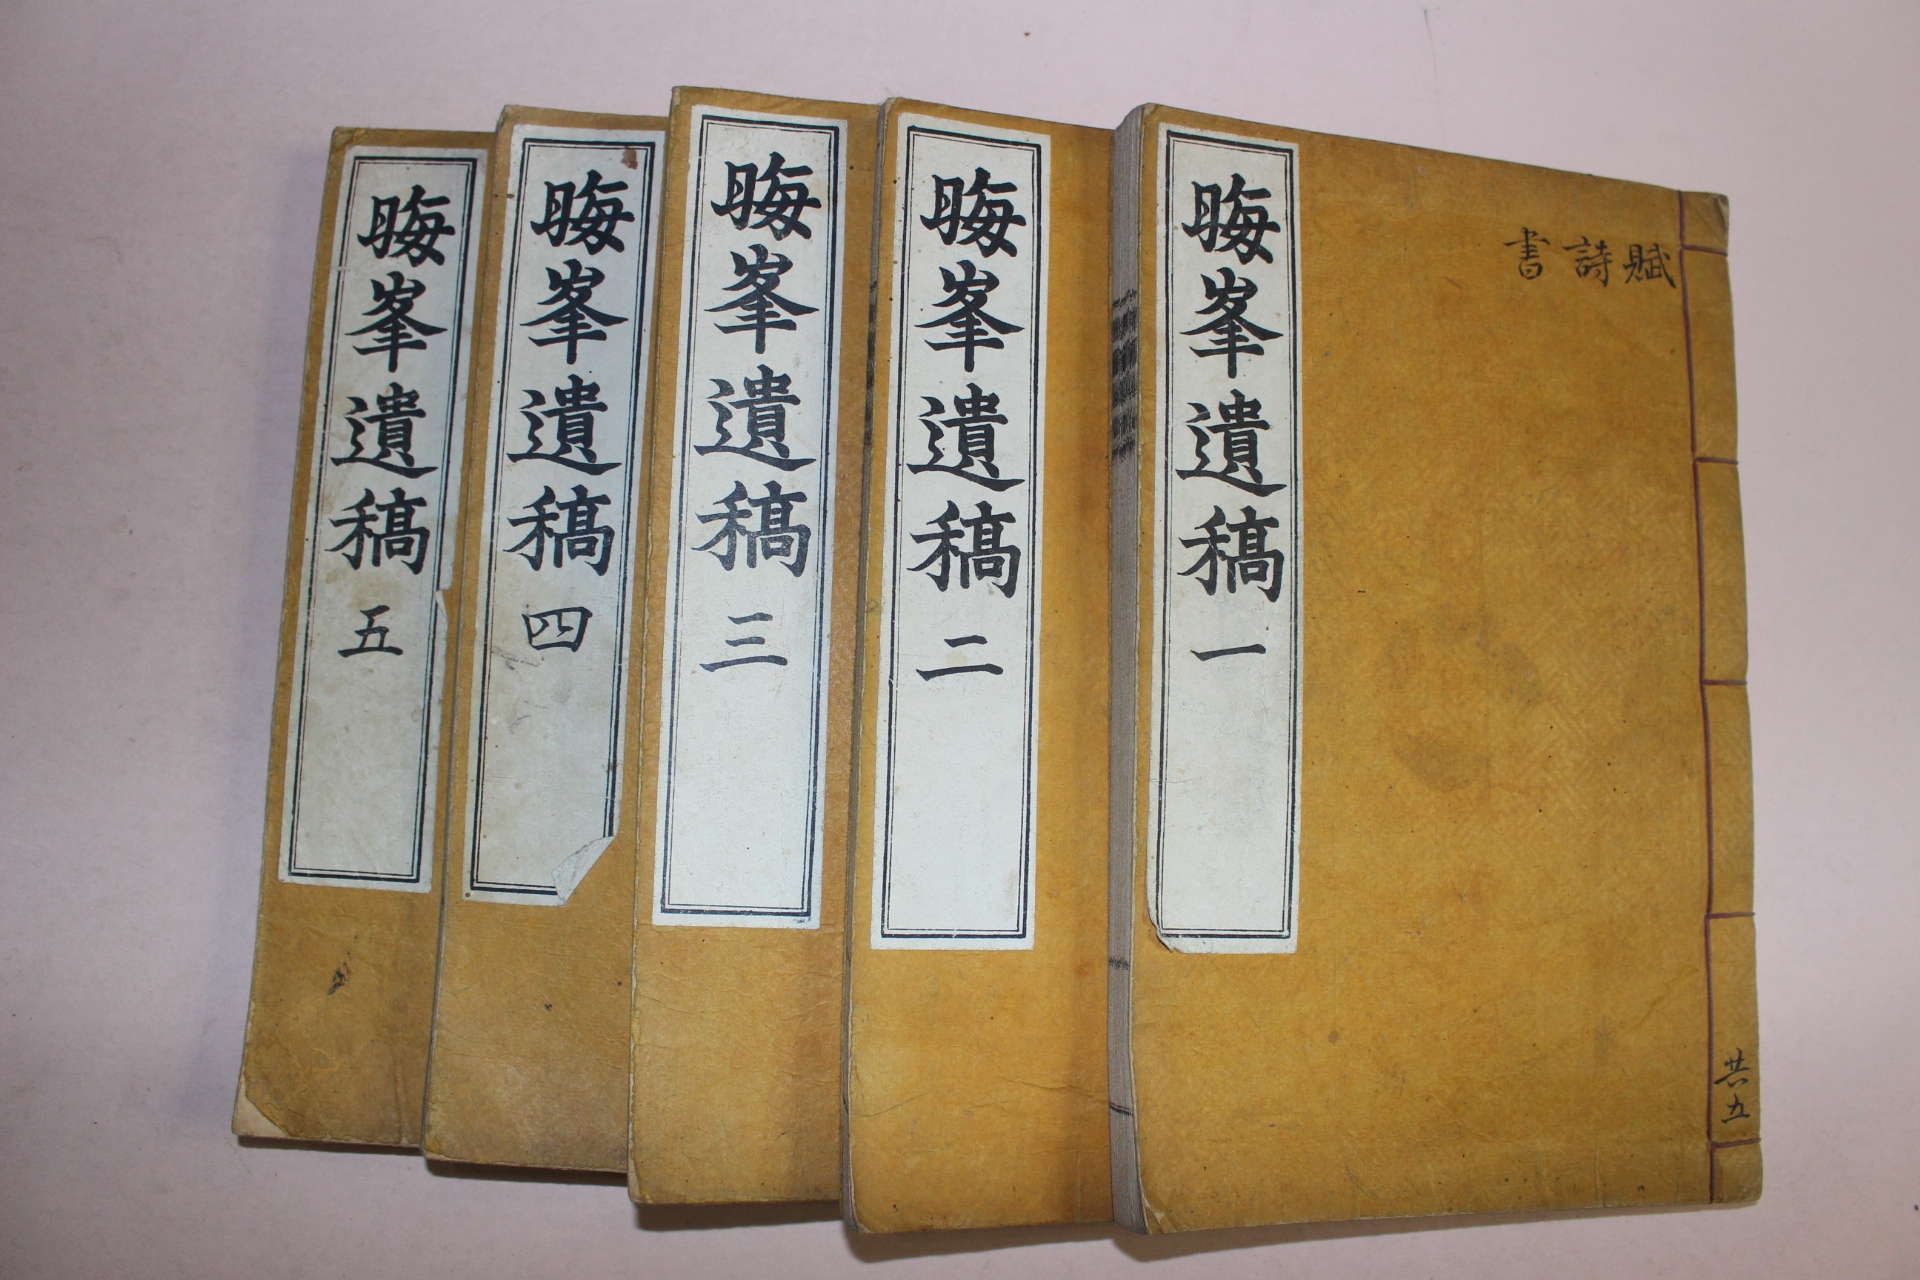 晦峯遺稿 一
賦
詩
書
共五
晦峯遺稿 二
晦峯遺稿 三
晦峯遺稿 四
晦峯遺稿 五